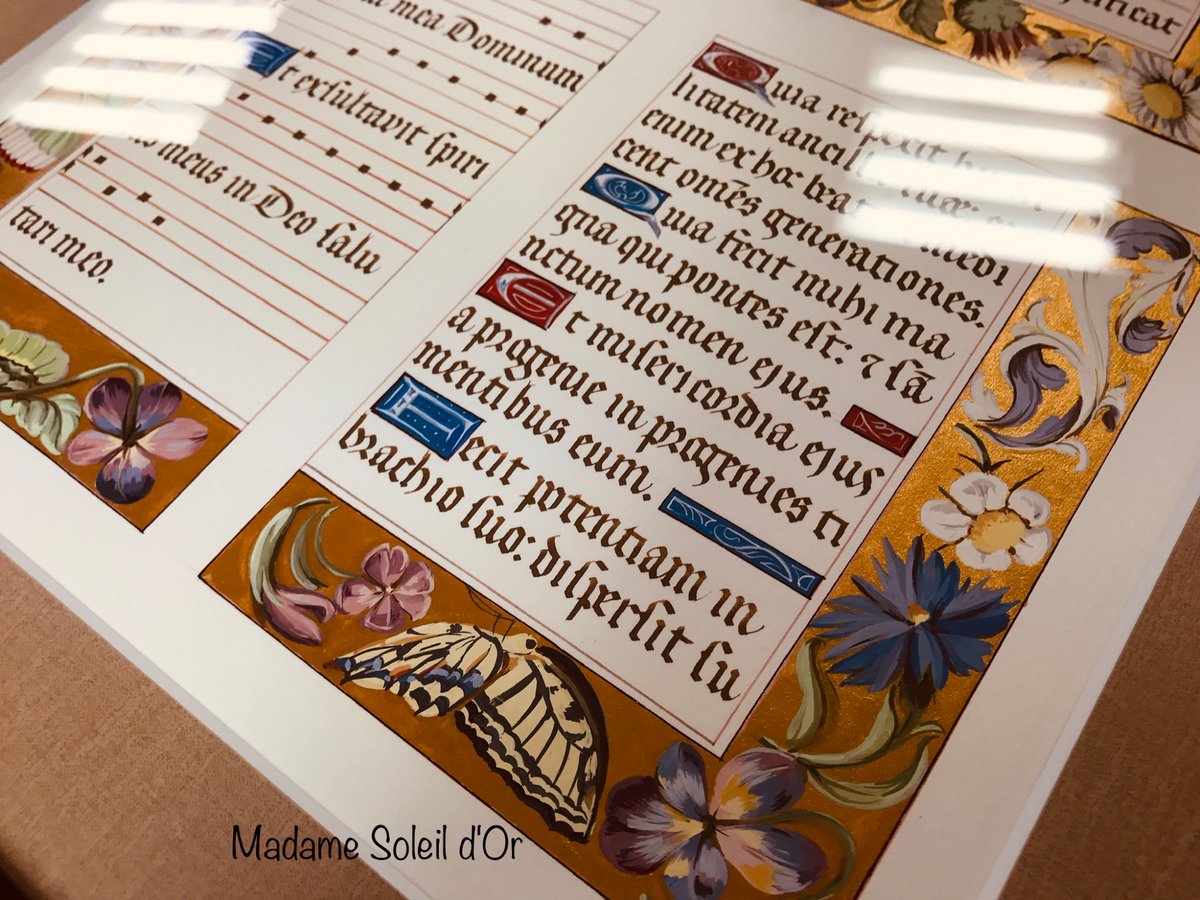 mea Dominum
Et exſultavit ſpiri
meus in Deo ſalu
tari meo.
Quia reſpexit
litatem ſuæ:
enim ex hoc medi
cent omēs generationes.
Quia fecit mihi ma
gna qui pontes eſt: ⁊ ſā
nctum nomen ejus.
Et miſericordia ejus
a progenie in progenies ti
mentibus eum.
Fecit potentiam in
brachio ſuo: diſperſit ſu
Madame Soleil d'Or